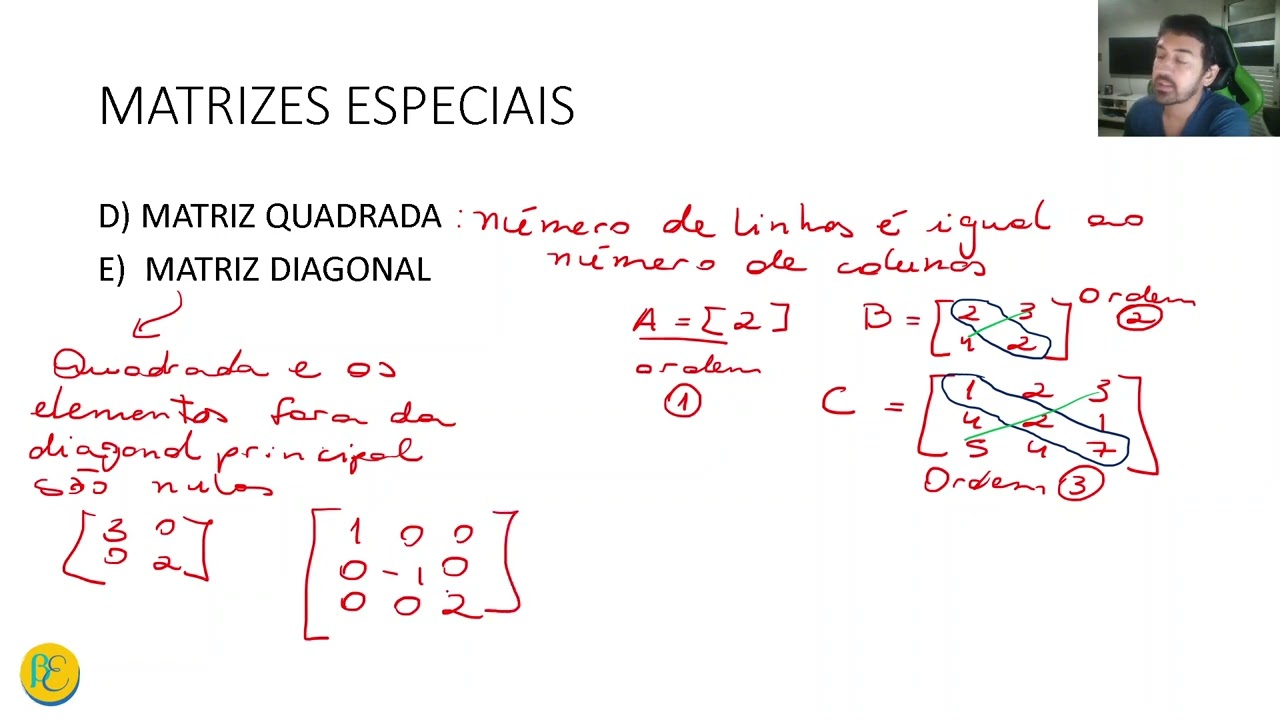 MATRIZES ESPECIAIS
D) MATRIZ QUADRADA : número de linhas é igual ao
número de colunas
E) MATRIZ DIAGONAL
Quadrada e os
elementos fora da
diagonal principal
são nulos
[3 0
0 2]
[1 0 0
0 -1 0
0 0 2]
A = [2]
ordem
1
B = [2 3
4 2]
Ordem
2
C = [1 2 3
4 2 1
5 4 7]
Ordem 3
BE